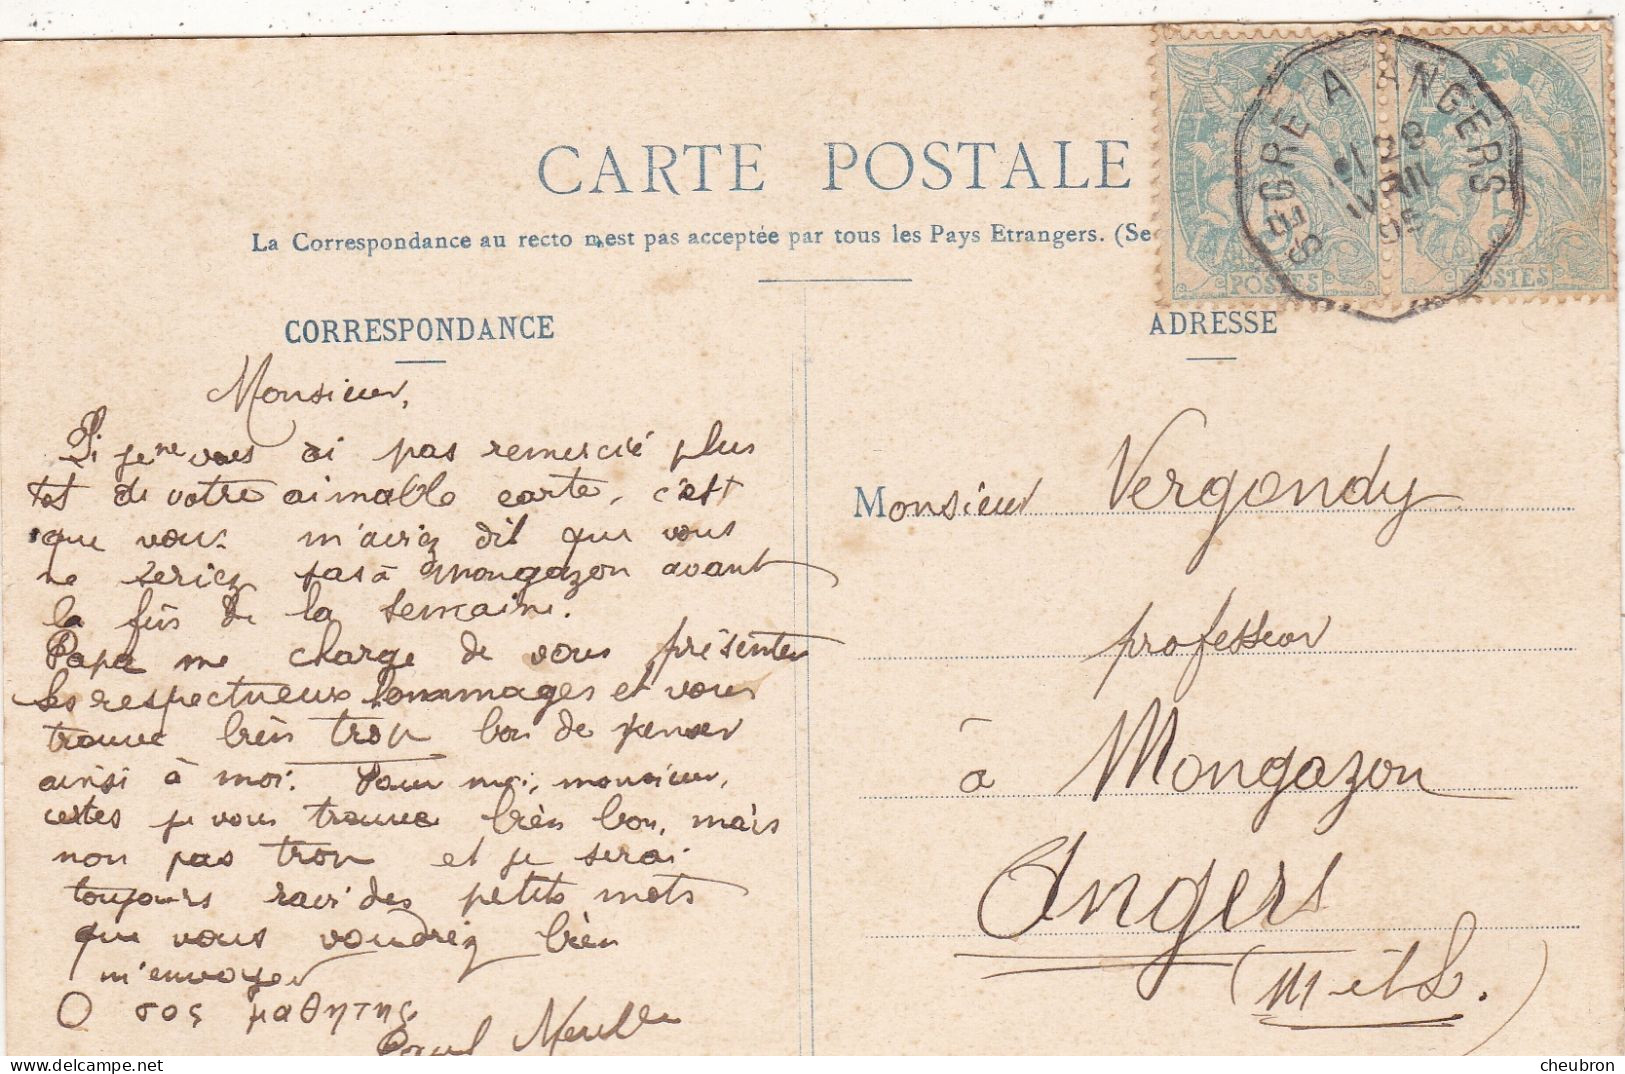 CARTE POSTALE
La Correspondance au recto n'est pas acceptée par tous les Pays Etrangers. (Se
CORRESPONDANCE
Monsieur,
Si je ne vous ai pas remercié plus
tot de votre aimable carte, c'est
que vous m'aviez dit que vous
ne seriez pas à Mongazon avant
la fin de la semaine.
Papa me charge de vous présenter
ses respectueux hommages et vous
trouve bien trop bon de penser
ainsi à moi. Pour moi, monsieur,
certes je vous trouve bien bon, mais
non pas trop et je serai
toujours ravi des petits mots
que vous voudriez bien
m'envoyer
Ο σος μαθητης
Paul
ADRESSE
Monsieur Vergondy
professeur
à Mongazon
Angers
(M et L.)
SEGRÉ A ANGERS
28
POSTES
POSTES
delcampe.net
cheubron